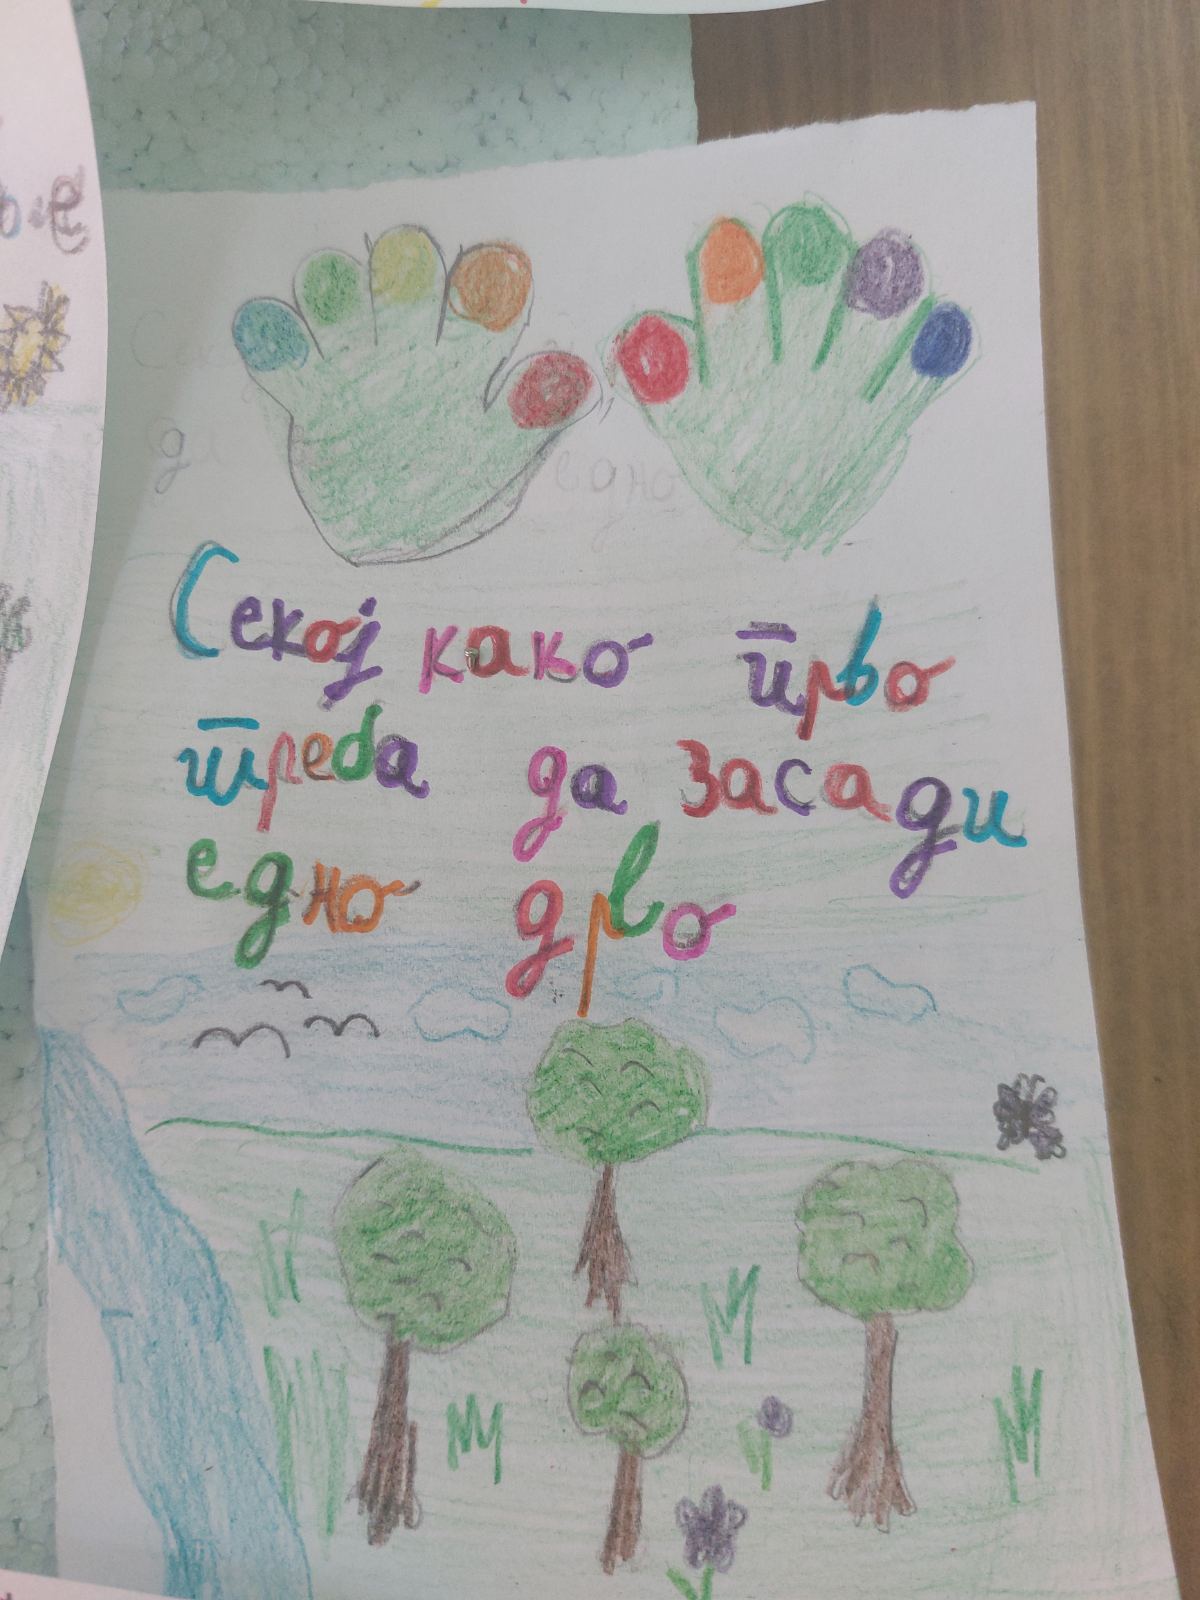 Секој како прво
треба да засади
едно дрво